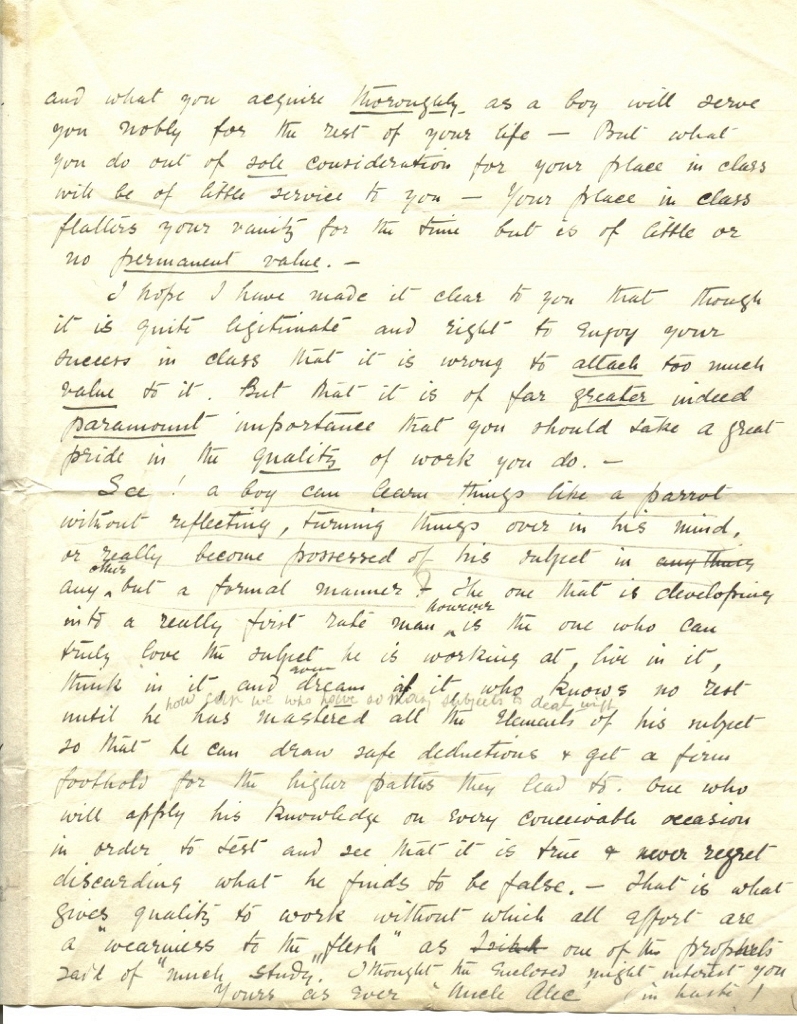 and what you acquire thoroughly as a boy will serve
you nobly for the rest of your life — But what
you do out of sole consideration for your place in class
will be of little service to you — Your place in class
flatters your vanity for the time but is of little or
no permanent value. —
I hope I have made it clear to you that though
it is quite legitimate and right to enjoy your
success in class that it is wrong to attach too much
value to it. But that it is of far greater indeed
paramount importance that you should take a great
pride in the quality of work you do. —
See! a boy can learn things like a parrot
without reflecting, turning things over in his mind,
or really become possessed of his subject in any thing
other
any but a formal manner? The one that is developing
however
into a really first rate man is the one who can
truly love the subject he is working at, live in it,
even
think in it and dream of it who knows no rest
how can we who have so many subjects to deal with
until he has mastered all the elements of his subject
so that he can draw safe deductions & get a firm
foothold for the higher paths they lead to. One who
will apply his knowledge on every conceivable occasion
in order to test and see that it is true & never regret
discarding what he finds to be false. — That is what
gives quality to work without which all effort are
a "weariness to the flesh" as one of the prophets
said of "much study". I thought the enclosed might interest you
Yours as ever "Uncle Alec" (in haste!